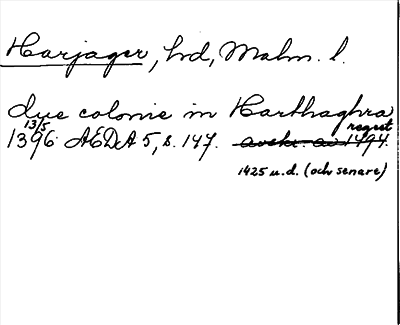 Harjager, hd, Malm. l.
due colonie in Harthaghra
13/5 regest
1396 AEDA 5, s. 147. avskr. av 1494.
1425 u.d. (och senare)